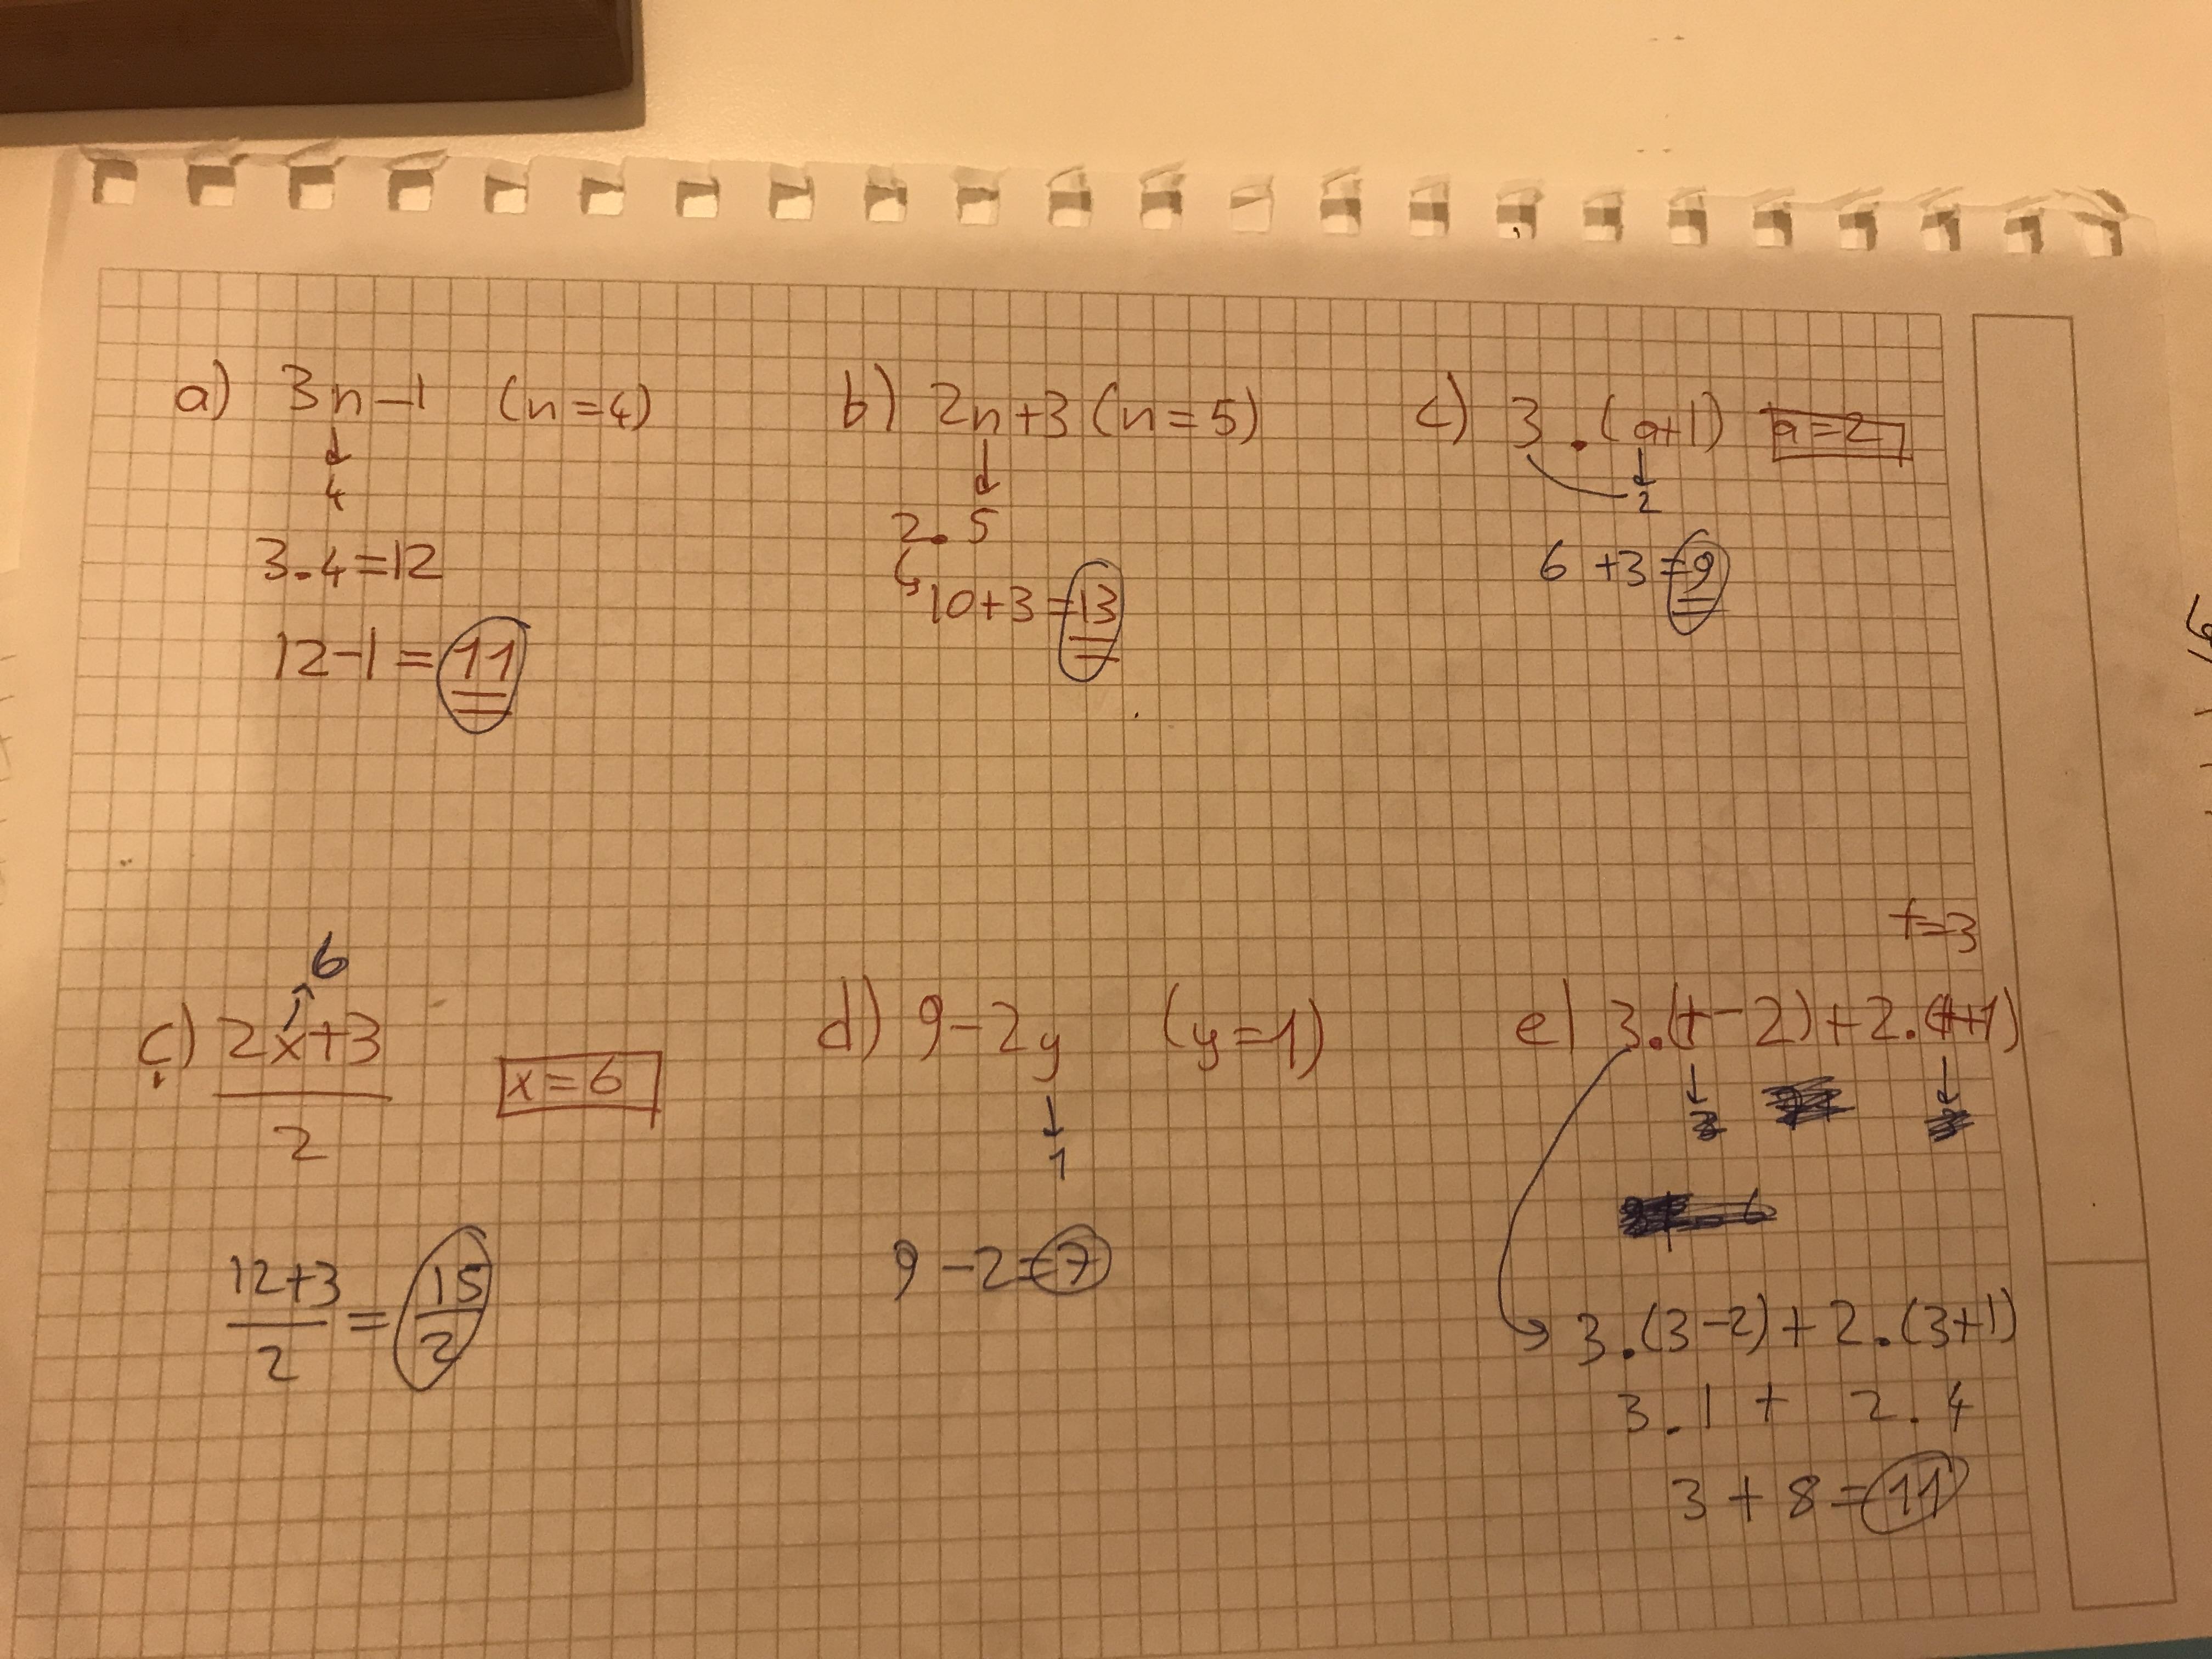 a) 3n-1 (n=4)
4
3.4=12
12-1=11
b) 2n+3 (n=5)
2.5
10+3=13
c) 3.(a+1) a=2
2
6+3=9
6
ç) 2x+3
2
x=6
12+3
2
=
15
2
d) 9-2y (y=1)
1
9-2=7
t=3
e) 3.(t-2)+2.(t+1)
3.(3-2)+2.(3+1)
3.1+ 2.4
3+8=11